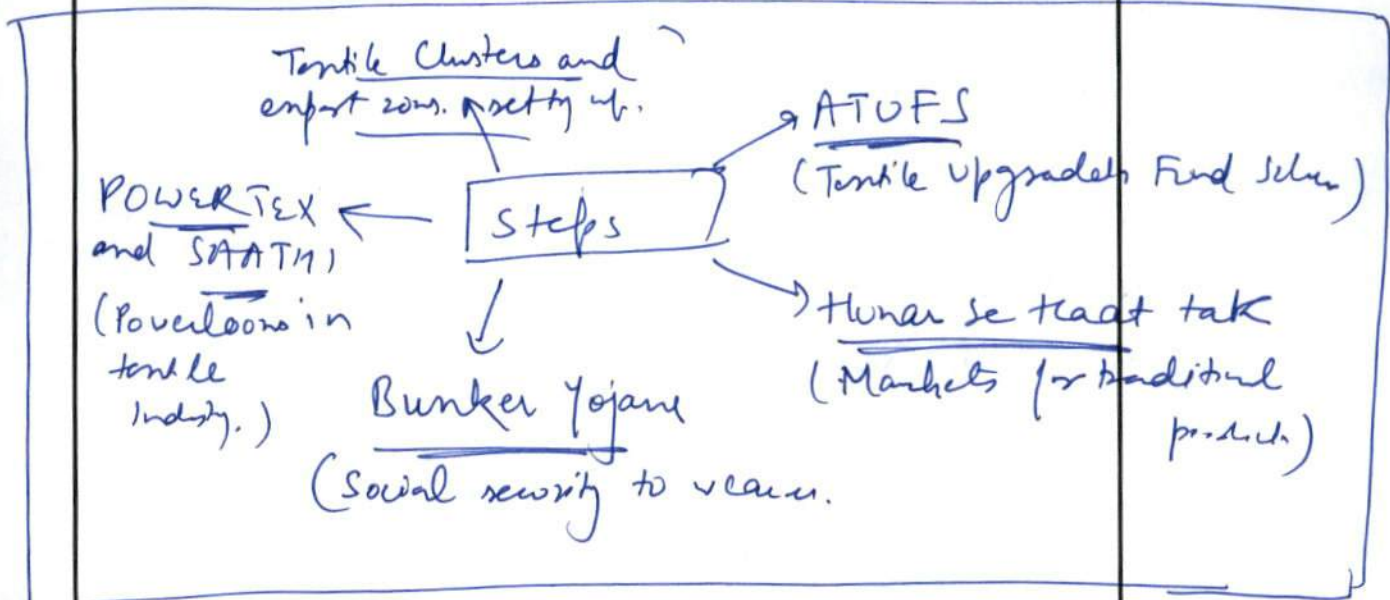 Textile Clusters and
export zones setting up.
ATUFS
(Textile Upgradat Fund Schem)
POWERTEX
and SAATHI
(Powerlooms in
textile
Industry.)
Steps
Hunar se Haat tak
(Markets for traditional
products)
Bunker Yojana
(Social security to